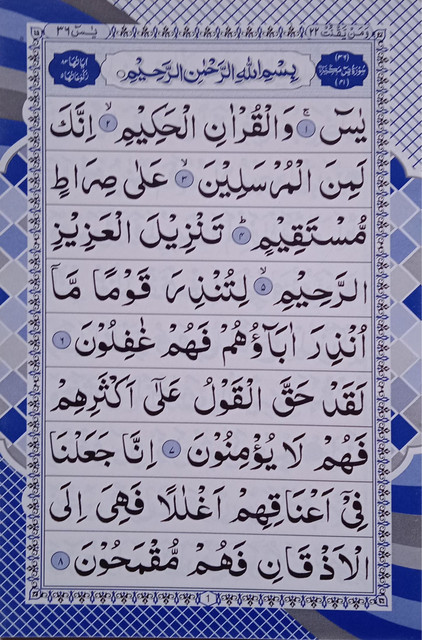 وَمَنْ يَّقْنُتْ ٢٢
يٰسٓ ٣٦
بِسْمِ اللّٰهِ الرَّحْمٰنِ الرَّحِيْمِ
يٰسٓ ۚ ﴿۱﴾ وَالْقُرْاٰنِ الْحَكِيْمِ ۙ ﴿۲﴾ اِنَّكَ
لَمِنَ الْمُرْسَلِيْنَ ۙ ﴿۳﴾ عَلٰى صِرَاطٍ
مُّسْتَقِيْمٍ ؕ ﴿۴﴾ تَنْزِيْلَ الْعَزِيْزِ
الرَّحِيْمِ ۙ ﴿۵﴾ لِتُنْذِرَ قَوْمًا مَّاۤ
اُنْذِرَ اٰبَآؤُهُمْ فَهُمْ غٰفِلُوْنَ ﴿۶﴾
لَقَدْ حَقَّ الْقَوْلُ عَلٰٓى اَكْثَرِهِمْ
فَهُمْ لَا يُؤْمِنُوْنَ ﴿۷﴾ اِنَّا جَعَلْنَا
فِيْۤ اَعْنَاقِهِمْ اَغْلٰلًا فَهِىَ اِلَى
الْاَذْقَانِ فَهُمْ مُّقْمَحُوْنَ ﴿۸﴾
1